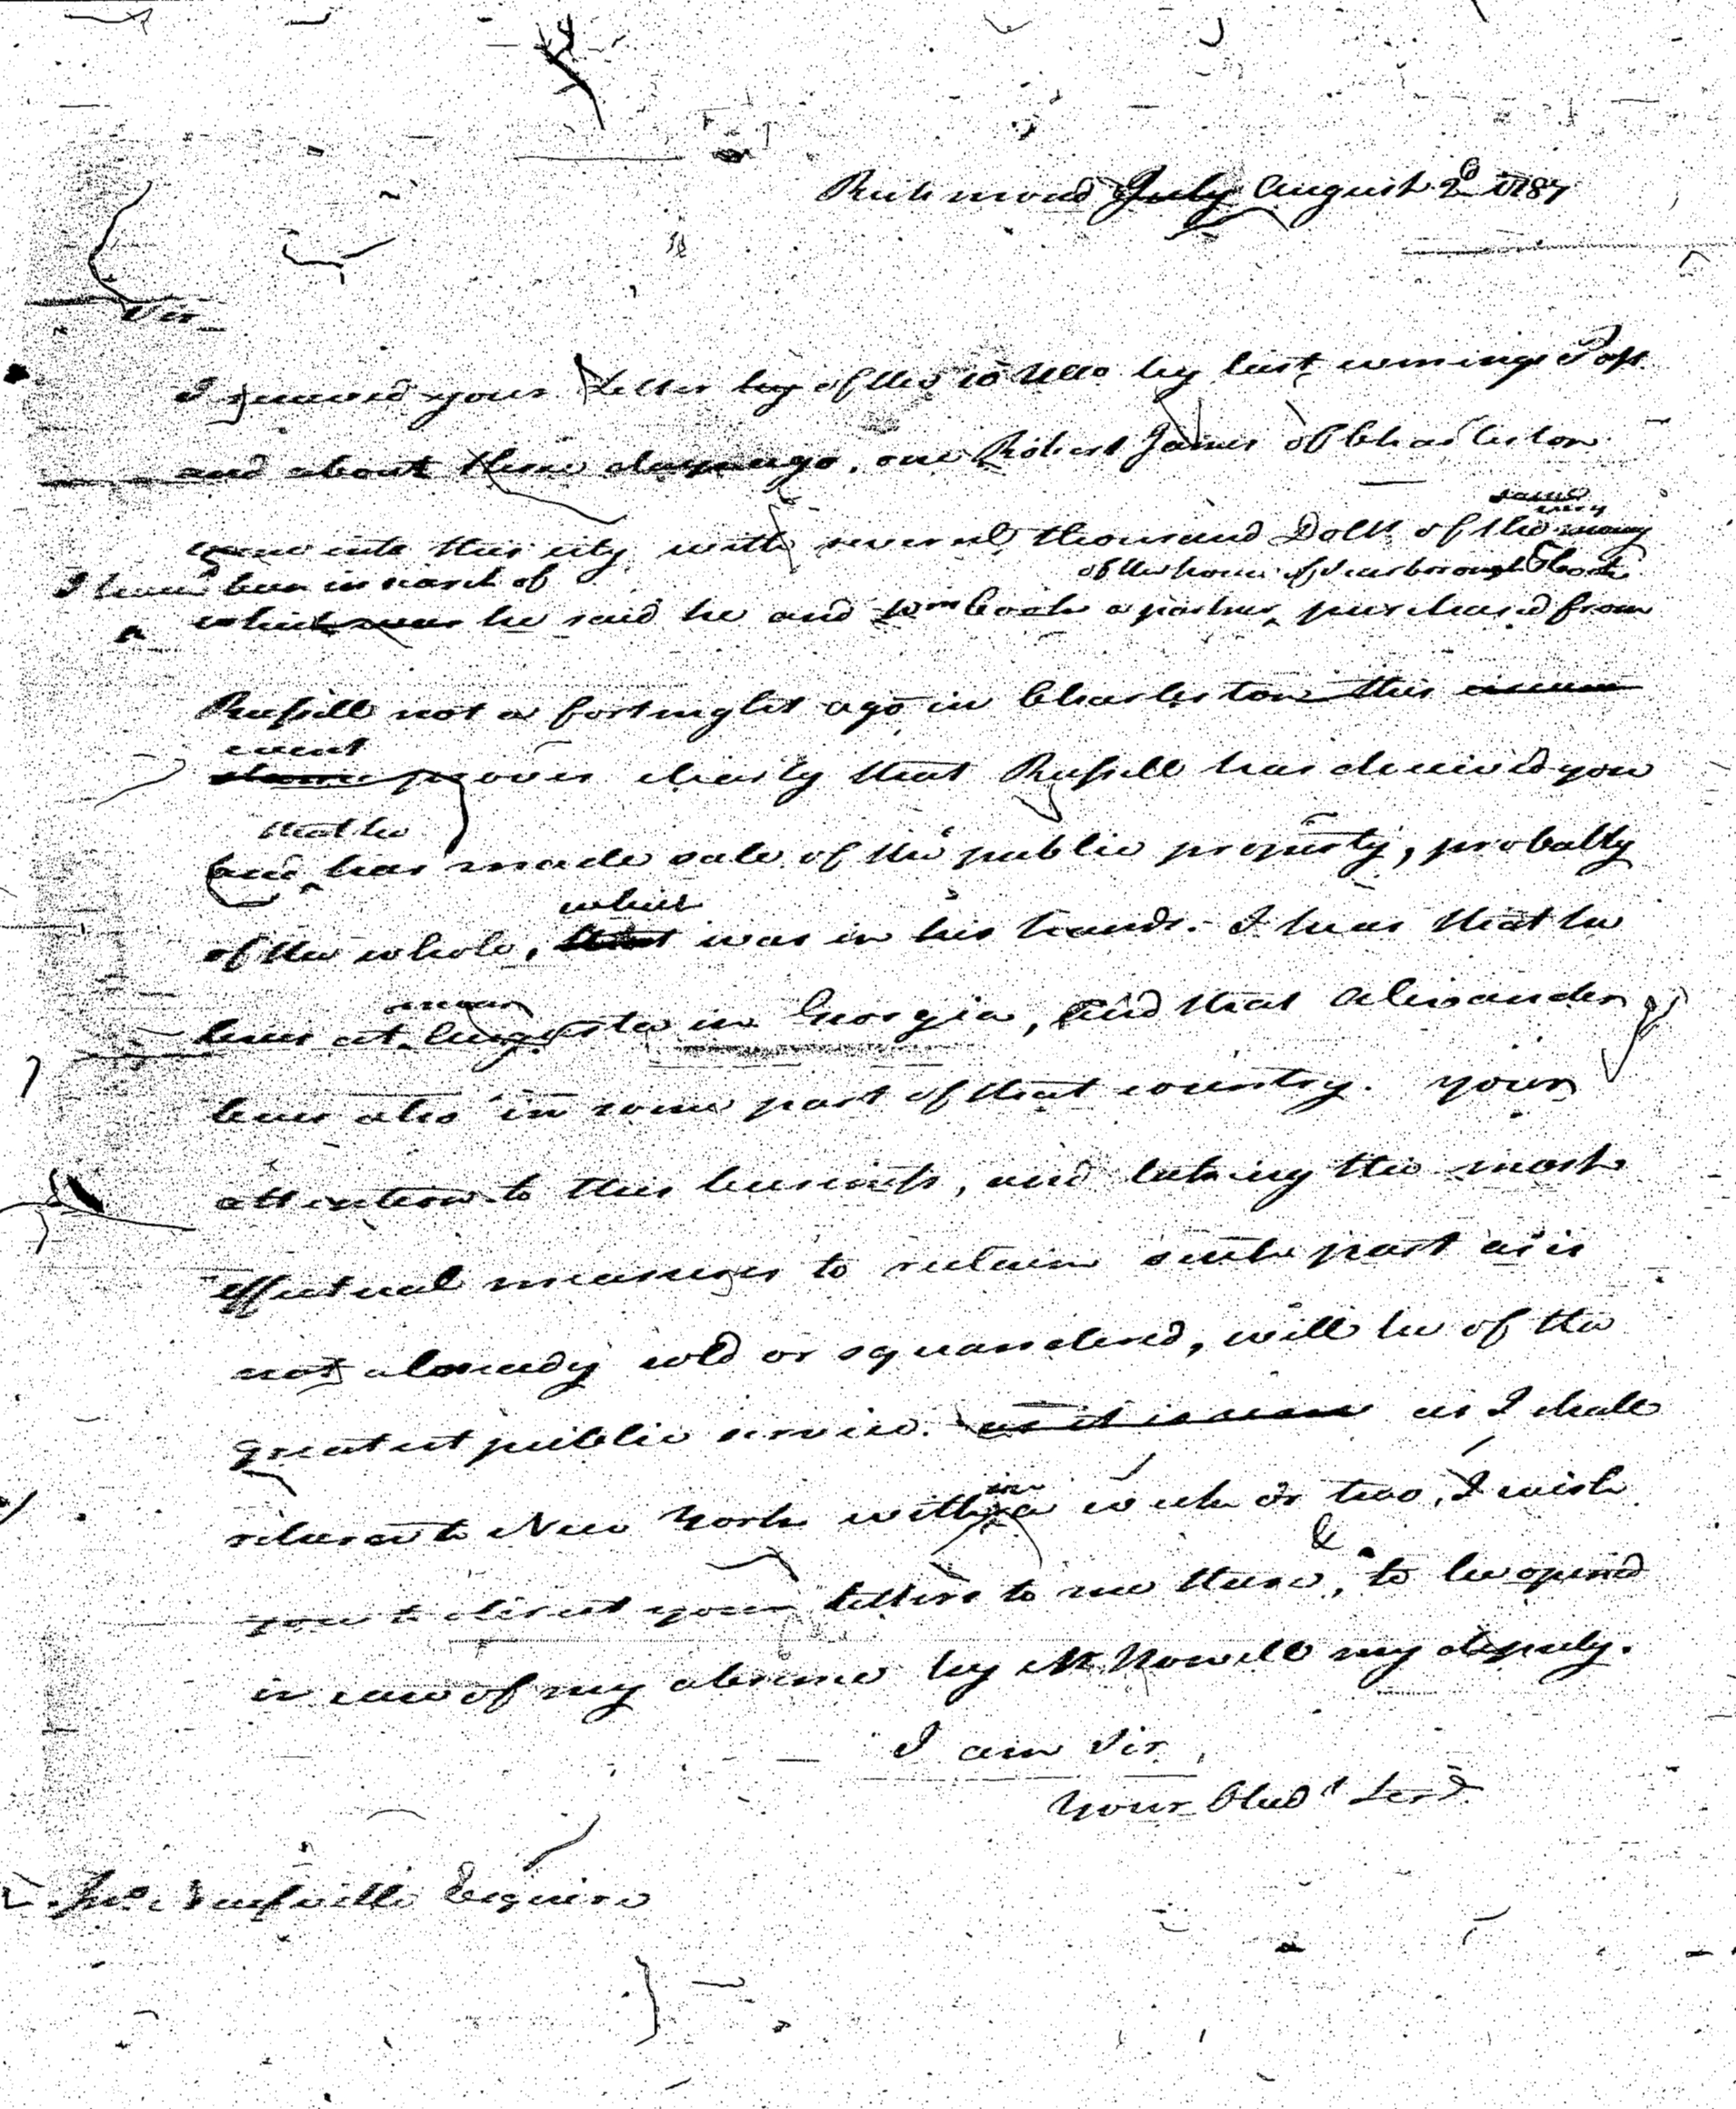 Richmond July August 2d 1787
Sir
I received your Letter by of the 10 Ullo by last evenings Post
and about three days ago, one Robert James of Charleston
same
came into this city with several thousand Dolls of the money
I have been in search of
of the house of Scarborough &
which was he said he and Wm Cook a partner purchased from
Russell not a fortnight ago in Charleston this circum
event
stance proves clearly that Russell has deceived you
that he
and has made sale of the public property, probably
which
of the whole, that was in his hands. I hear that he
or near
lives at Augusta in Georgia, and that Alexander
lives also in some part of that country. your
attention to this business, and taking the most
effectual measures to retain such part as is
not already sold or squandered, will be of the
greatest public service. as it is as I shall
return to New York with a week or two, I wish
in
&
you to direct your letters to me there, to be opened
in case of my absence by Mr Nowell my deputy.
I am Sir
Your Obedt Servt
Jno. Neufville Esquire